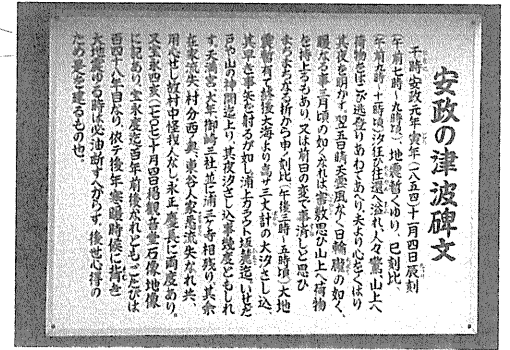 安政の津波碑文
于時安政元年寅年(一八五四)十一月四日辰刻
(午前七時～九時頃)、地震暫くゆり、巳刻比
(午前九時～十時頃)汐狂ひ往還へ溢れ、人々驚、山上へ
荷物をはこび逃登りあわてあへり、夫より心をくばり
其夜を明かす。翌五日晴天雲風なく、日輪朧の如く、
暖なる事三月頃の如くなれば、
思ひ山上へ荷物
を持上るもあり、又は前日の変で事済しと思ひ
まちまちなる折から申ノ刻比(午後三時～五時頃)大地
震動有て
大海より高サ三丈計の大汐さし込
其早き事矢を射るが如し
其夜さし込事幾度ともしれ
す、天満宮、大年、御崎三社並に浦三ヶ寺相残り、其余
在家流失、村分西ノ奥、東谷、人家
流失なれ共、
用心せし故村中怪我人なし、永正、慶長に両度あり、
又宝永四亥(一七〇七)十月四日
観音堂石像地像
に記あり、宝永度迄百年前後なれども、こたびは
百四十八年目なり、依テ後年寒暖時候に背き
大地震ゆる時は必油断すべからず、後世心得の
ため是を建るもの也。